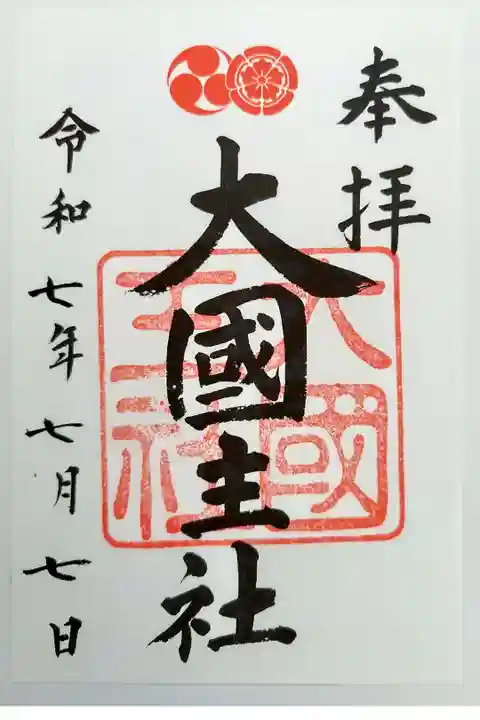 奉拝
大國主社
大國
主社
令和七年七月七日